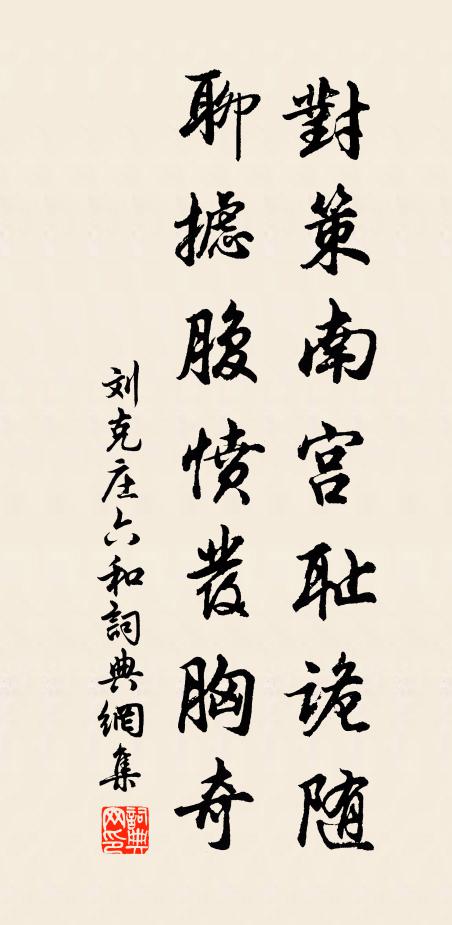 對策南宫耻詭随
聊攄腹憤發胸奇
刘克庄六和詞典網集
詞典网印